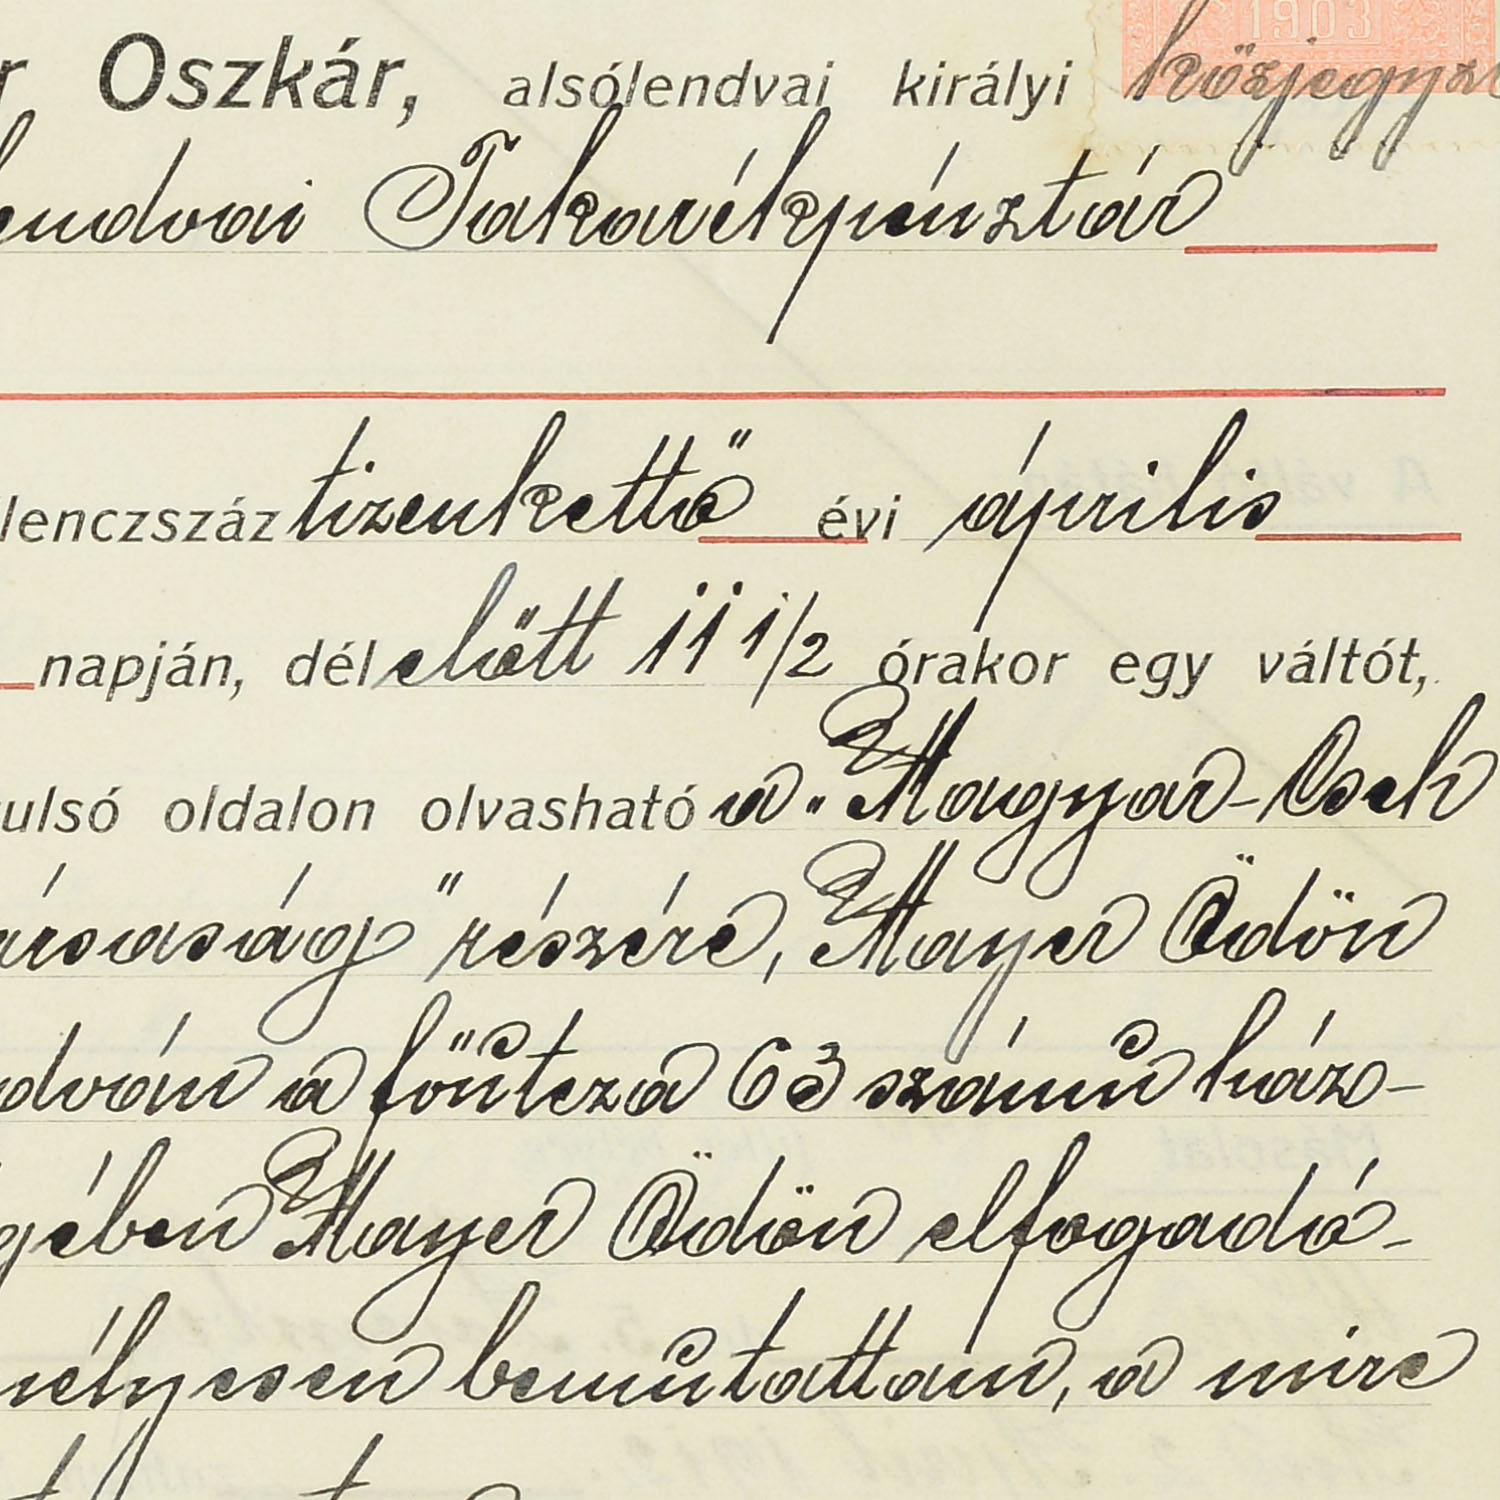 1903
r Oszkár, alsólendvai királyi közjegyző
lendvai Takarékpénztár
lenczszáz tizenkettő évi április
napján, délelőtt 11 1/2 órakor egy váltót,
tulsó oldalon olvasható a „Magyar-Cseh
ársaság" részére, Mayer Ödön
dván a főutcza 63 számu ház-
gében Mayer Ödön elfogadó-
mélyesen bemutattam, a mire